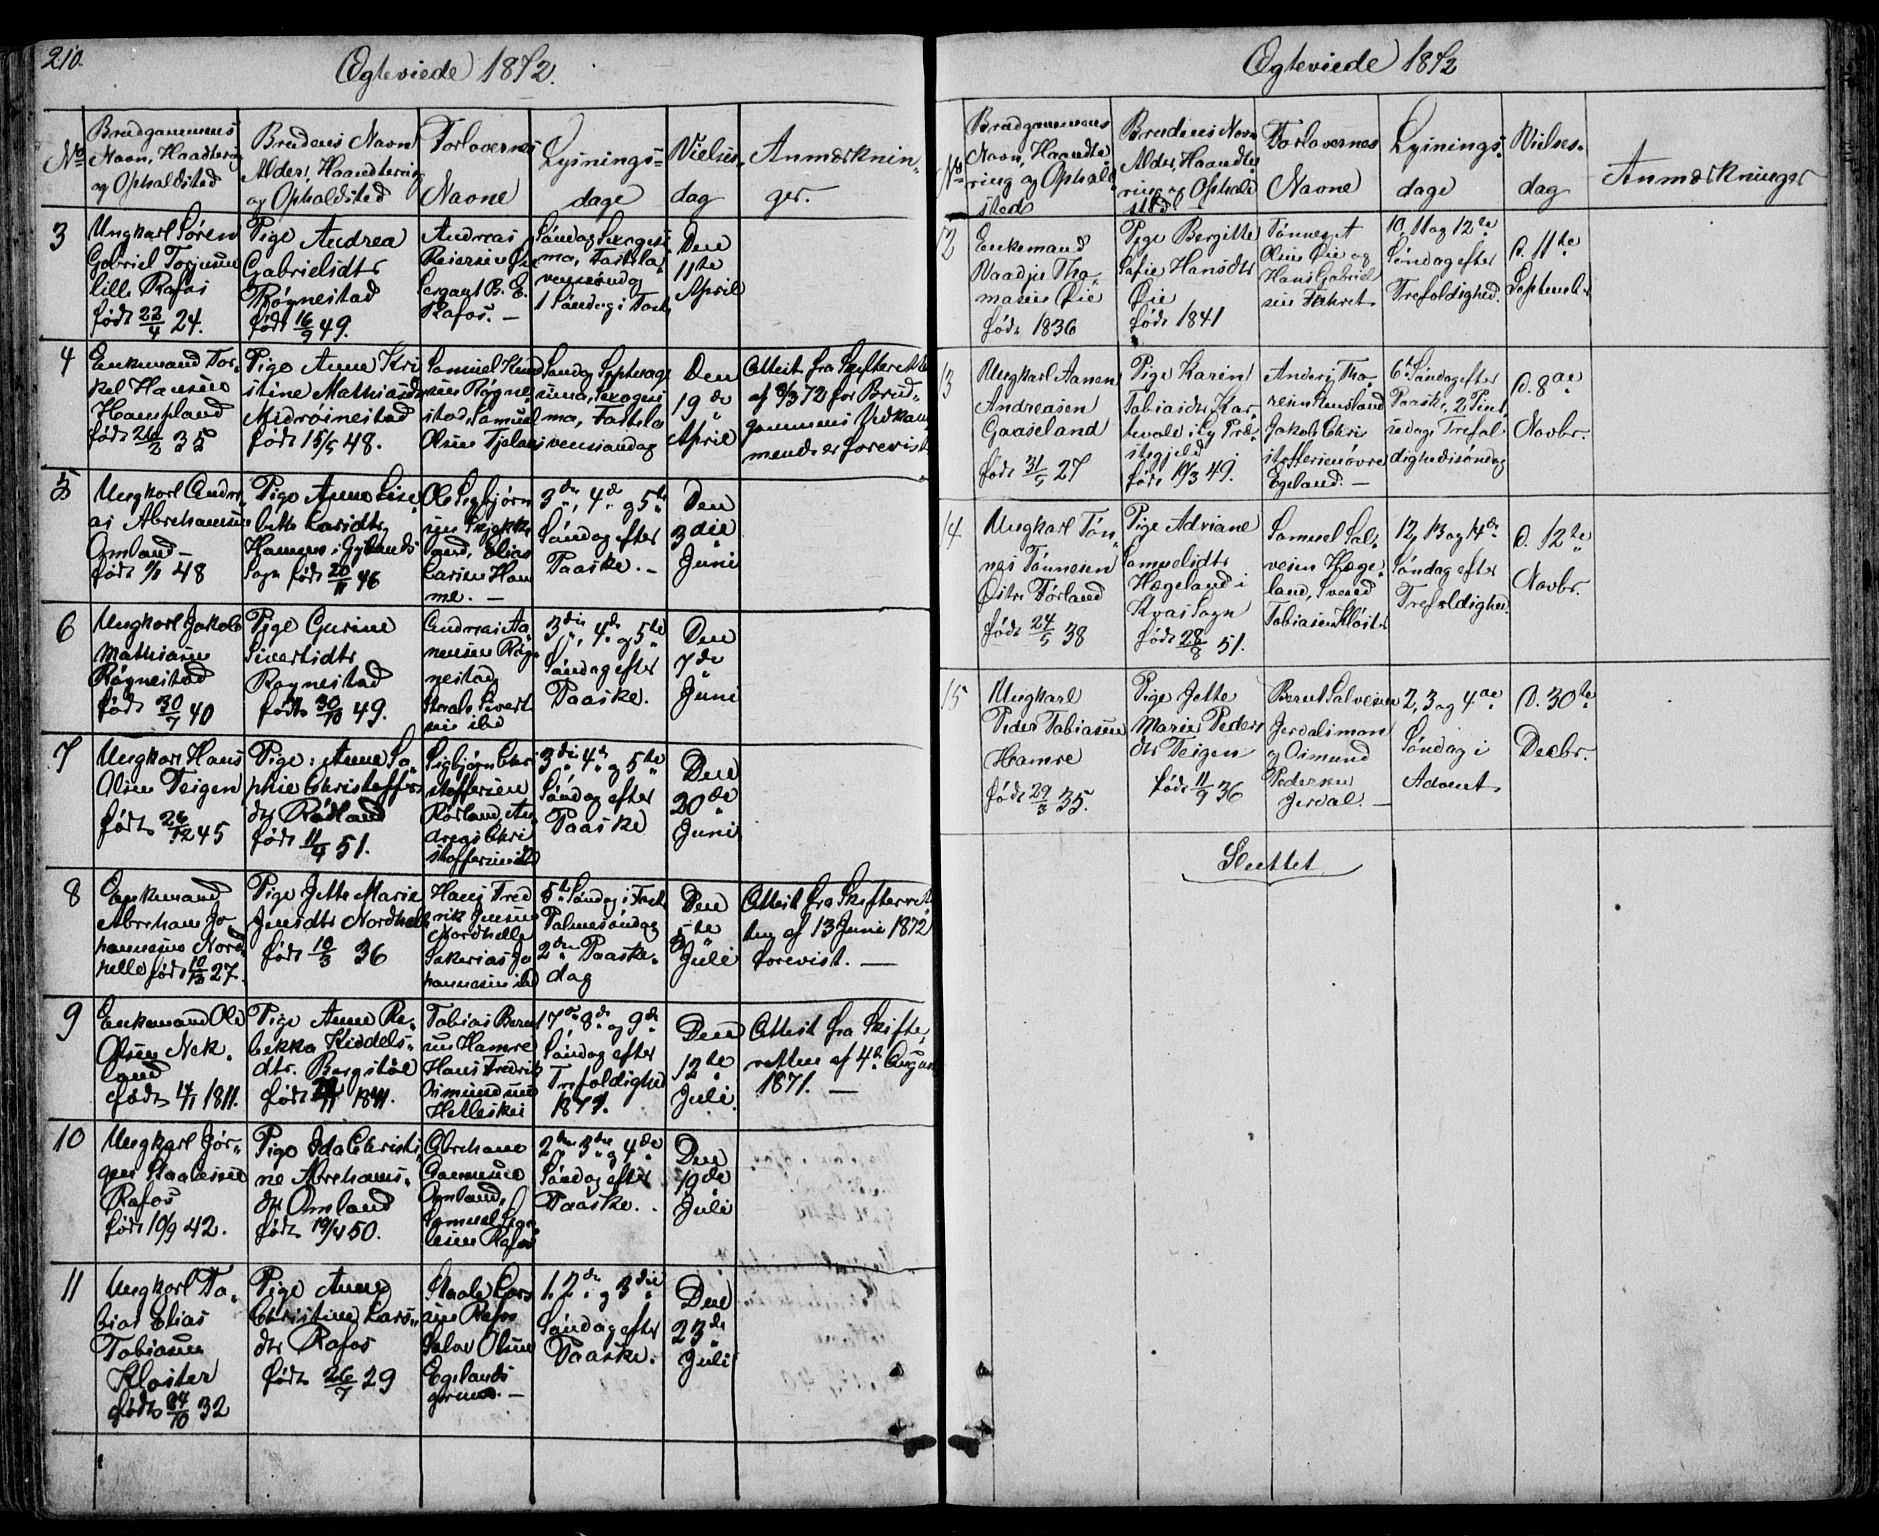 210.
Ægteviede 1872.
No
Brudgommens
Navn, Haandtering
og Opholdsted
Brudens Navn
Alder, Haandtering
og Opholdsted
Forlovernes
Navne
Lysnings-
dage
Vielses-
dag
Anmærknin-
ger.
3
Ungkarl Søren
Gabriel Torjusen
lille Rafos
født 22/4 24.
Pige Andrea
Gabrielsdtr
Røgnestad
født 16/9 49.
Andreas
Reiersen
Sergant B. E.
Rafos. —
Søndag Sexagesi
ma, Fastela
vensøndag
1 Søndag i Faste
Den
11te
April
4
Enkemand Tor-
kel Hansen
Hampland
født 26/2 35
Pige Anne Kri
stine Mathiasdtr
Midrøinestad
født 15/5 48.
Samuel Knud
sen Røgne-
stad, Samuel
Olsen Tjelan
Søndag Septuage
sima, Sexagesi
ma, Fastela
vensøndag
Den
19de
April
Attest fra Skifteretten
af 8/3 72 for Brud-
gommens Vedkom
mende er forevist
5
Ungkarl Andre
as Abrehamsen
Omland —
født 1/1 48
Pige Anne Lise
beth Larsdtr
Hamme i Gylands
Sogn født 20/11 46
Ole Sigbjørn
sen
land, Elias
Larsen Ham
me. —
3die, 4de og 5te
Søndag efter
Paaske. —
Den
3die
Juni
6
Ungkarl Jakob
Mathiasen
Røgnestad
født 30/7 40
Pige Gurine
Sivertsdtr
Røgnestad
født 30/10 49.
Andreas Aa
nensen Røg-
nestad
Sivert
sen ibd
3die, 4de og 5te
Søndag efter
Paaske.
Den
7de
Juni
7
Ungkarl Hans
Olsen Teigen
født 26/12 45
Pige: Anne So
phie Christoffers
dtr Rødland
født 11/4 51.
Sigbjørn Chri
stoffersen
Rørland, An
dreas Chri
stoffersen ibd
3die 4de og 5te
Søndag efter
Paaske
Den
20de
Juni
8
Enkemand
Abreham Jo
hannesen Nord
helle født 10/12 27.
Pige Jette Marie
Jensdtr Nordhelle
født 10/3 36
Hans Fred
rik Jensen
Nordhelle
Sakerias Jo
hannesen ibd
5te Søndag i Faste
Palmesøndag
2den Paaske-
dag
Den
5te
Juli
Attest fra Skifteret
ten af 13 Juni 1872
forevist. —
9
Enkemand Ole
Olsen Nek-
land
født 4/1 1811.
Pige Anne Re-
bekka Kiddels-
dtr. Bergstøl
født 1841.
Tobias Bernt
sen Hamre
Hans Fredrik
Osmundsen
Helleskei
17de 8de og 9de
Søndag efter
Trefoldighed
1871.
Den
12te
Juli.
Attest fra Skifte-
retten af 4de August
1871. —
10
Ungkarl Jør-
gen Staalesen
Rafos
født 10/9 42.
Pige Ida Christi
ne Abrehams-
dtr Omland
født 19/4 50.
Abreham
Omland,
Samuel
Rafos
2den 3die og 4de
Søndag efter
Paaske.
Den
19de
Juli
11
Ungkarl To-
bias Elias
Tobiasen
Kloster
født 24/10 32
Pige Anne
Christine Lars-
dtr Rafos
født 26/7 29
Staale Lars
sen Rafos
Salve Olsen
Egelands
1, 2den og 3die
Søndag efter
Paaske.
Den
23de
Juli
Ægteviede 1872
No
Brudgommens
Navn, Haandte-
ring og Ophold
sted
Brudens Navn
Alder, Haandte
ring og Ophold
sted
Forlovernes
Navne
Lysnings-
dage
Vielses-
dag
Anmærkninger
12
Enkemand
Vaadje Tho-
masen Øie
født 1836
Pige Bergitte
Sofie Hansdtr
Øie
født 1841
Tønnes A
Olsen Øie og
Hans Gabriel
sen
10, 11 og 12te
Søndag efter
Trefoldighed.
D. 11te
September
13
Ungkarl Aanen
Andreasen
Gaaseland
født 31/5 27
Pige Karin
Tobiasdtr Kar-
tevold i Ly Præ-
stegjeld
født 19/3 49.
Anders Tho-
resen
Jakob Chri
stoffersen øvre
Egeland. —
6te Søndag efter
Paaske, 2 Pint
sedag, Trefol-
dighedssøndag
D. 8de
Novbr.
14
Ungkarl Tøn-
nes Tønnesen
Østre Førland
født 24/5 38
Pige Adriane
Samuelsdtr
Hægeland i
Kvas Sogn
født 28/8 51.
Samuel Sal-
vesen Hæge-
land, Svend
Tobiasen Kloster
12, 13 og 14de
Søndag efter
Trefoldighed
D. 12te
Novbr.
15
Ungkarl
Peder Tobiasen
Hamre
født 29/3 35.
Pige Jette
Marie Peders
dtr Teigen
født 11/9 36
Bernt Salvesen
Jerdalsmon
og Osmund
Pedersen
Jerdal. —
2, 3 og 4de
Søndag i
Advent
D. 30te
Decbr.
Sluttet